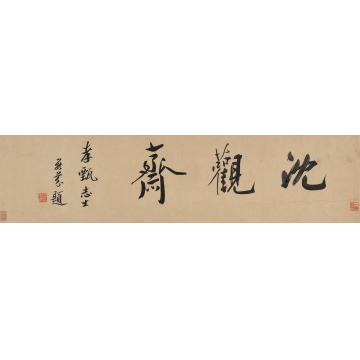 沈觀齋
孝甄志士
題